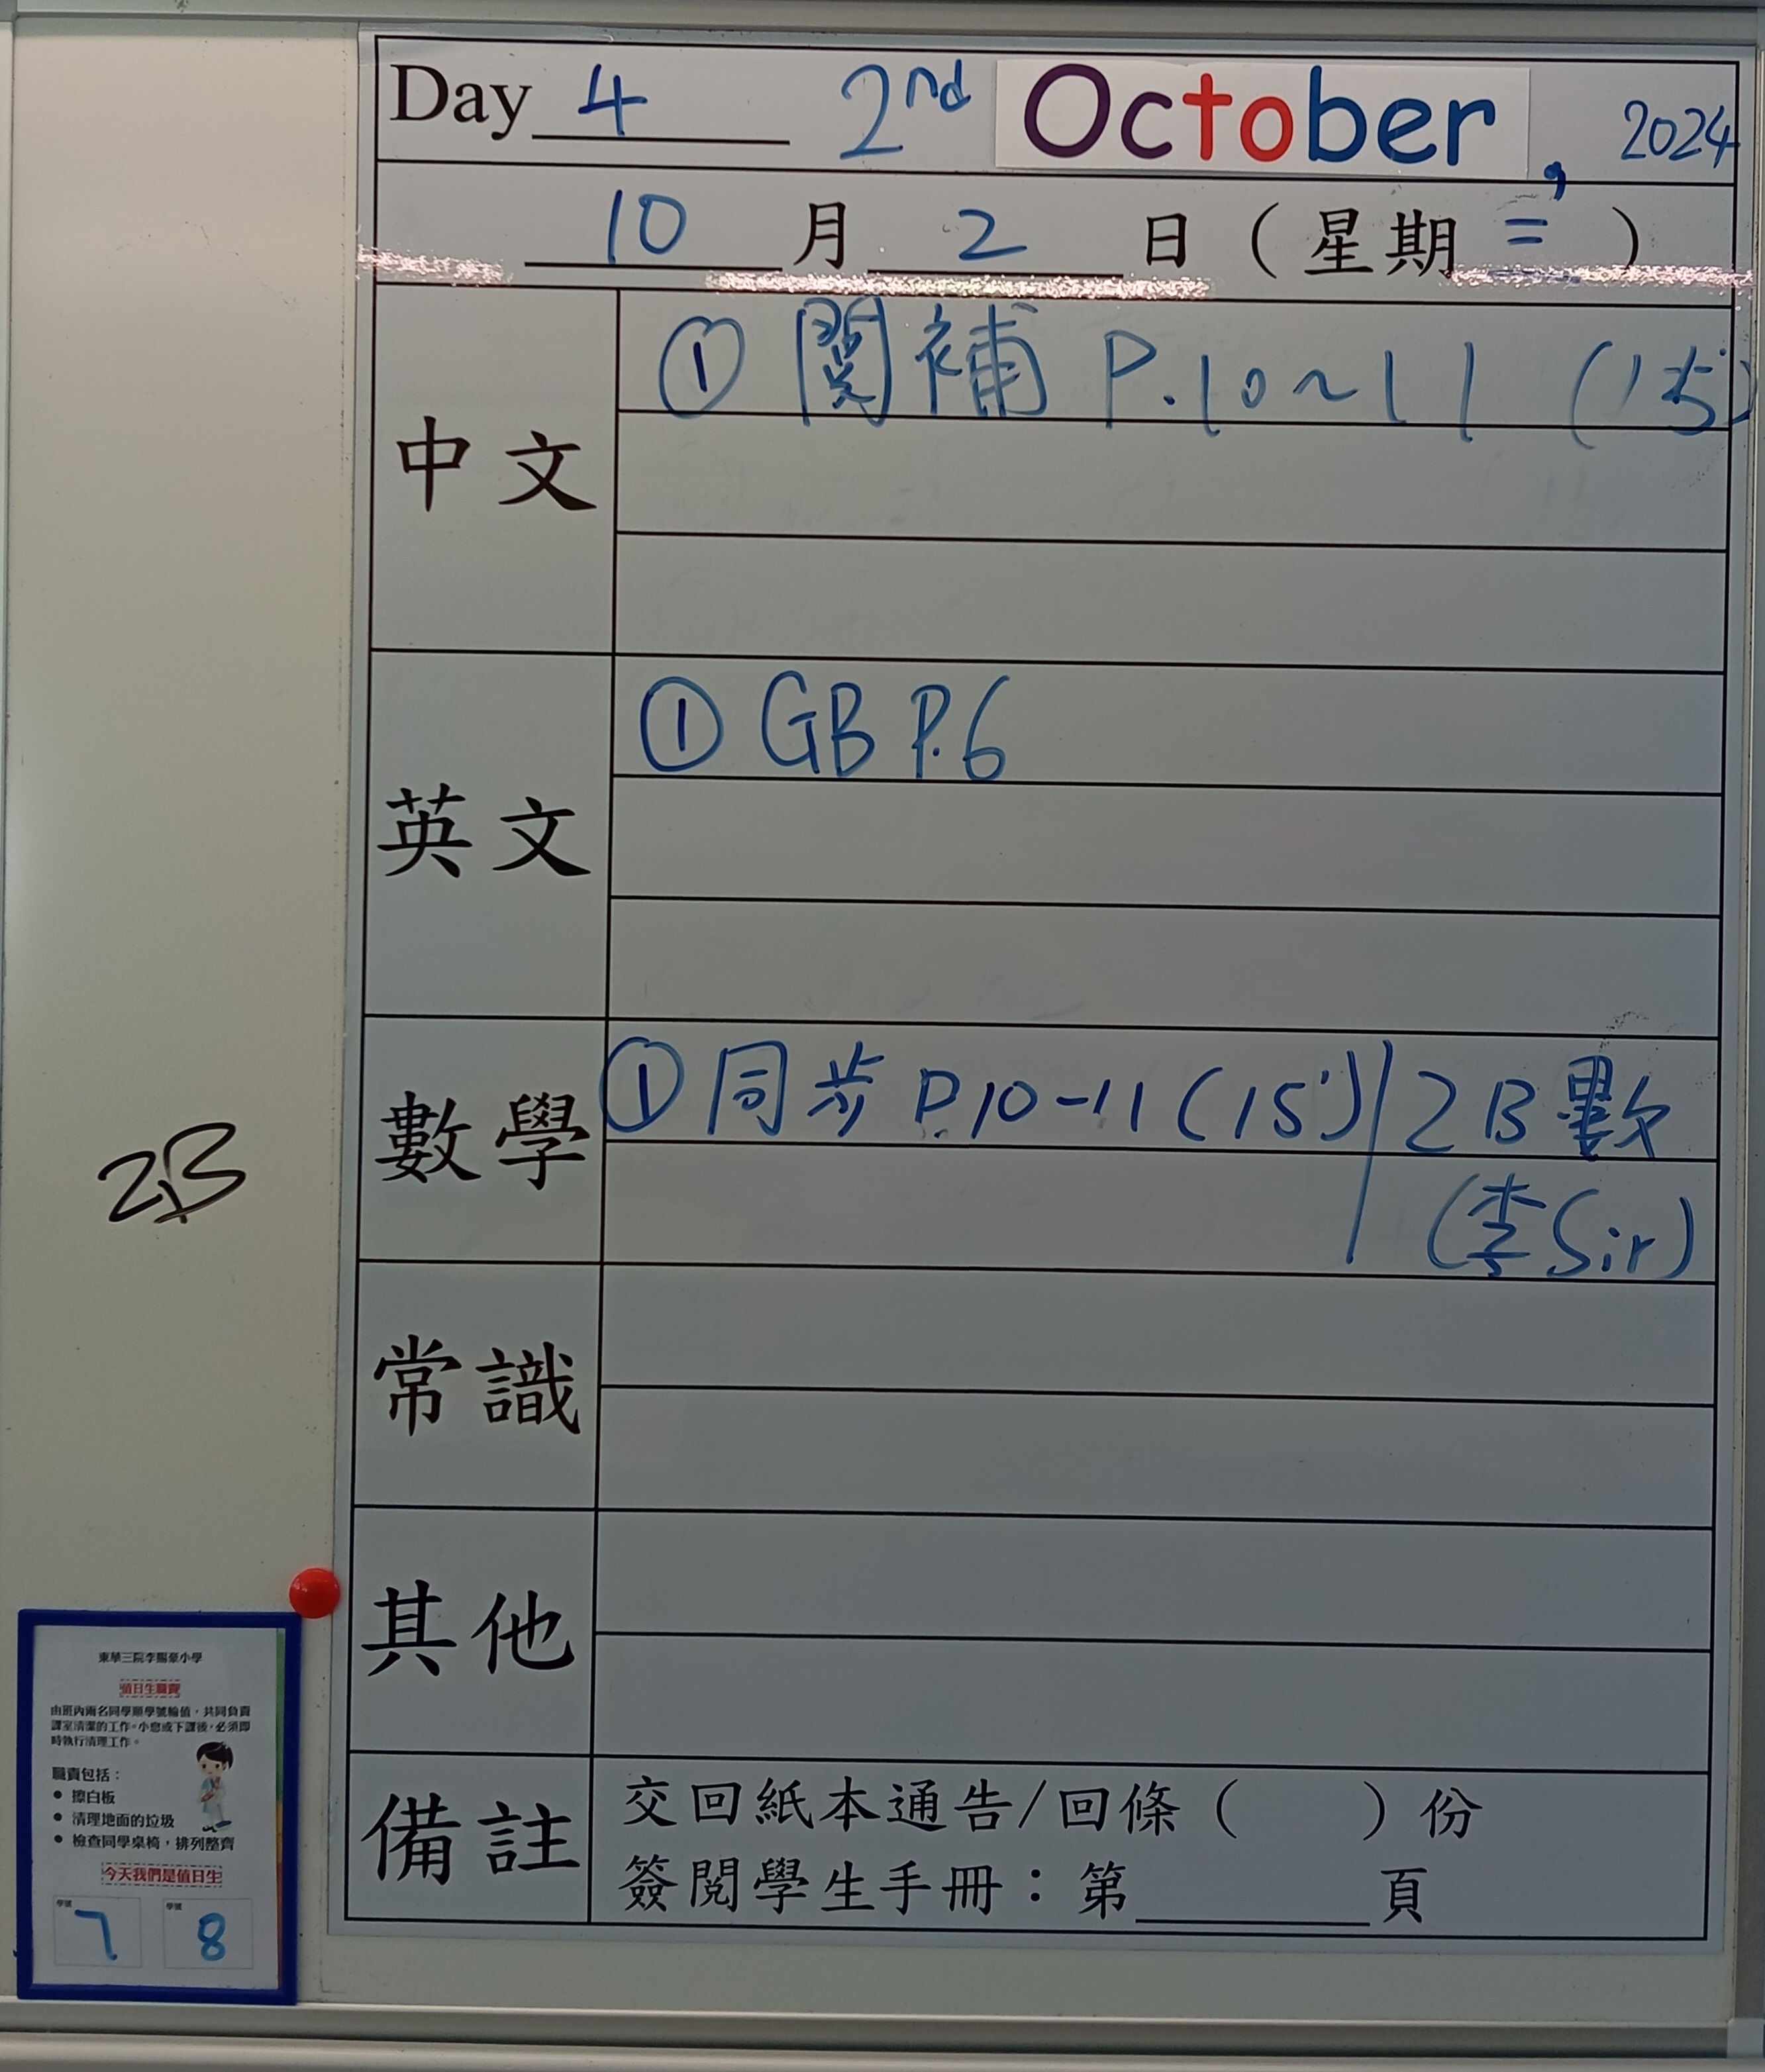 Day 4 2nd October, 2024
10月2日（星期三）
中文
① 閱補 P.10~11 (15')
英文
① GB P.6
數學
① 同步 P.10-11 (15') / 2B數
(李Sir)
2B
常識
其他
備註
交回紙本通告/回條（ ）份
簽閱學生手冊：第 頁
東華三院李賜豪小學
值日生職責
由班內兩名同學順學號輪值，共同負責
課室清潔的工作。小息或下課後，必須即
時執行清理工作。
職責包括：
● 擦白板
● 清理地面的垃圾
● 檢查同學桌椅，排列整齊
今天我們是值日生
學號 學號
7 8